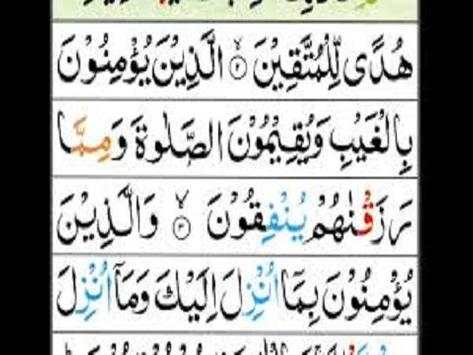 هُدًى لِّلْمُتَّقِيْنَ ۙ﴿۲﴾ الَّذِيْنَ يُؤْمِنُوْنَ
بِالْغَيْبِ وَيُقِيْمُوْنَ الصَّلٰوةَ وَمِمَّا
رَزَقْنٰهُمْ يُنْفِقُوْنَ ۙ﴿۳﴾ وَالَّذِيْنَ
يُؤْمِنُوْنَ بِمَآ اُنْزِلَ اِلَيْكَ وَمَآ اُنْزِلَ